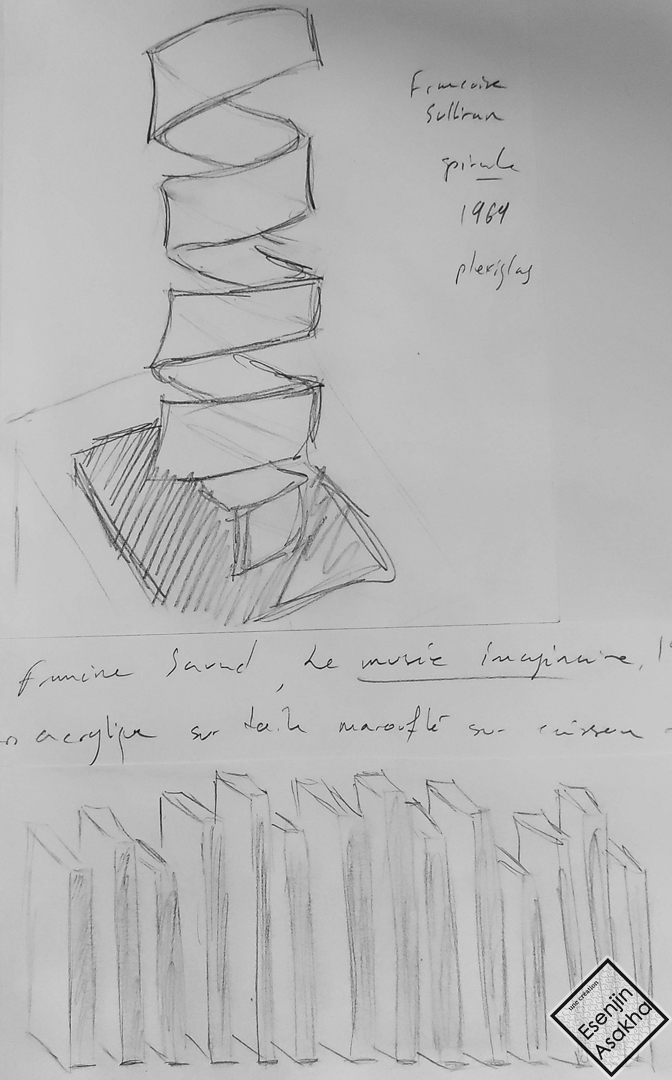 Françoise
Sullivan
spirale
1969
plexiglas
Francine Savard, Le musée imaginaire, 19
acrylique sur toile marouflé sur caisson
une création
Esenjin
Asakha